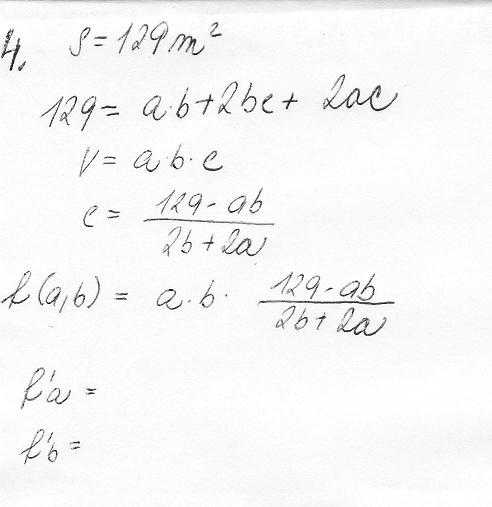 4. S = 129 m²
129 = a·b + 2bc + 2ac
V = a·b·c
c = (129 - ab) / (2b + 2a)
f(a,b) = a·b· (129 - ab) / (2b + 2a)
f'a =
f'b =